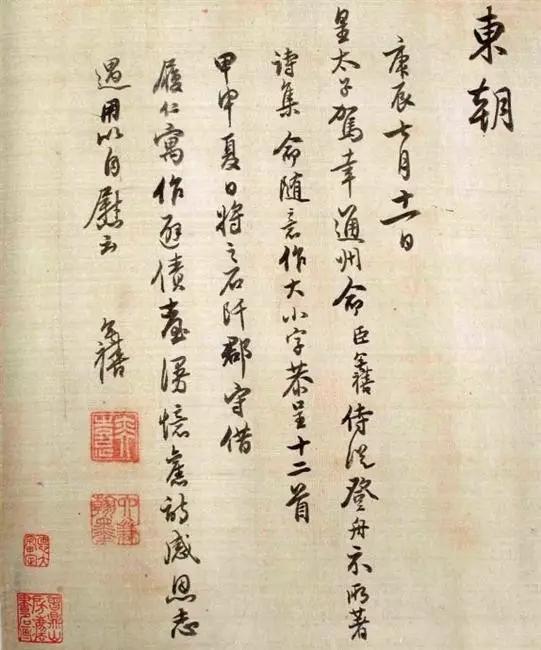 東朝
庚辰七月十一日
皇太子駕幸通州命臣奕禧侍從登舟示所著
詩集命随意作大小字恭呈十二首
甲申夏日將之石阡郡守借
履仁寓作避債臺漫憶舊詩感恩志
遇用以自慰云
奕禧